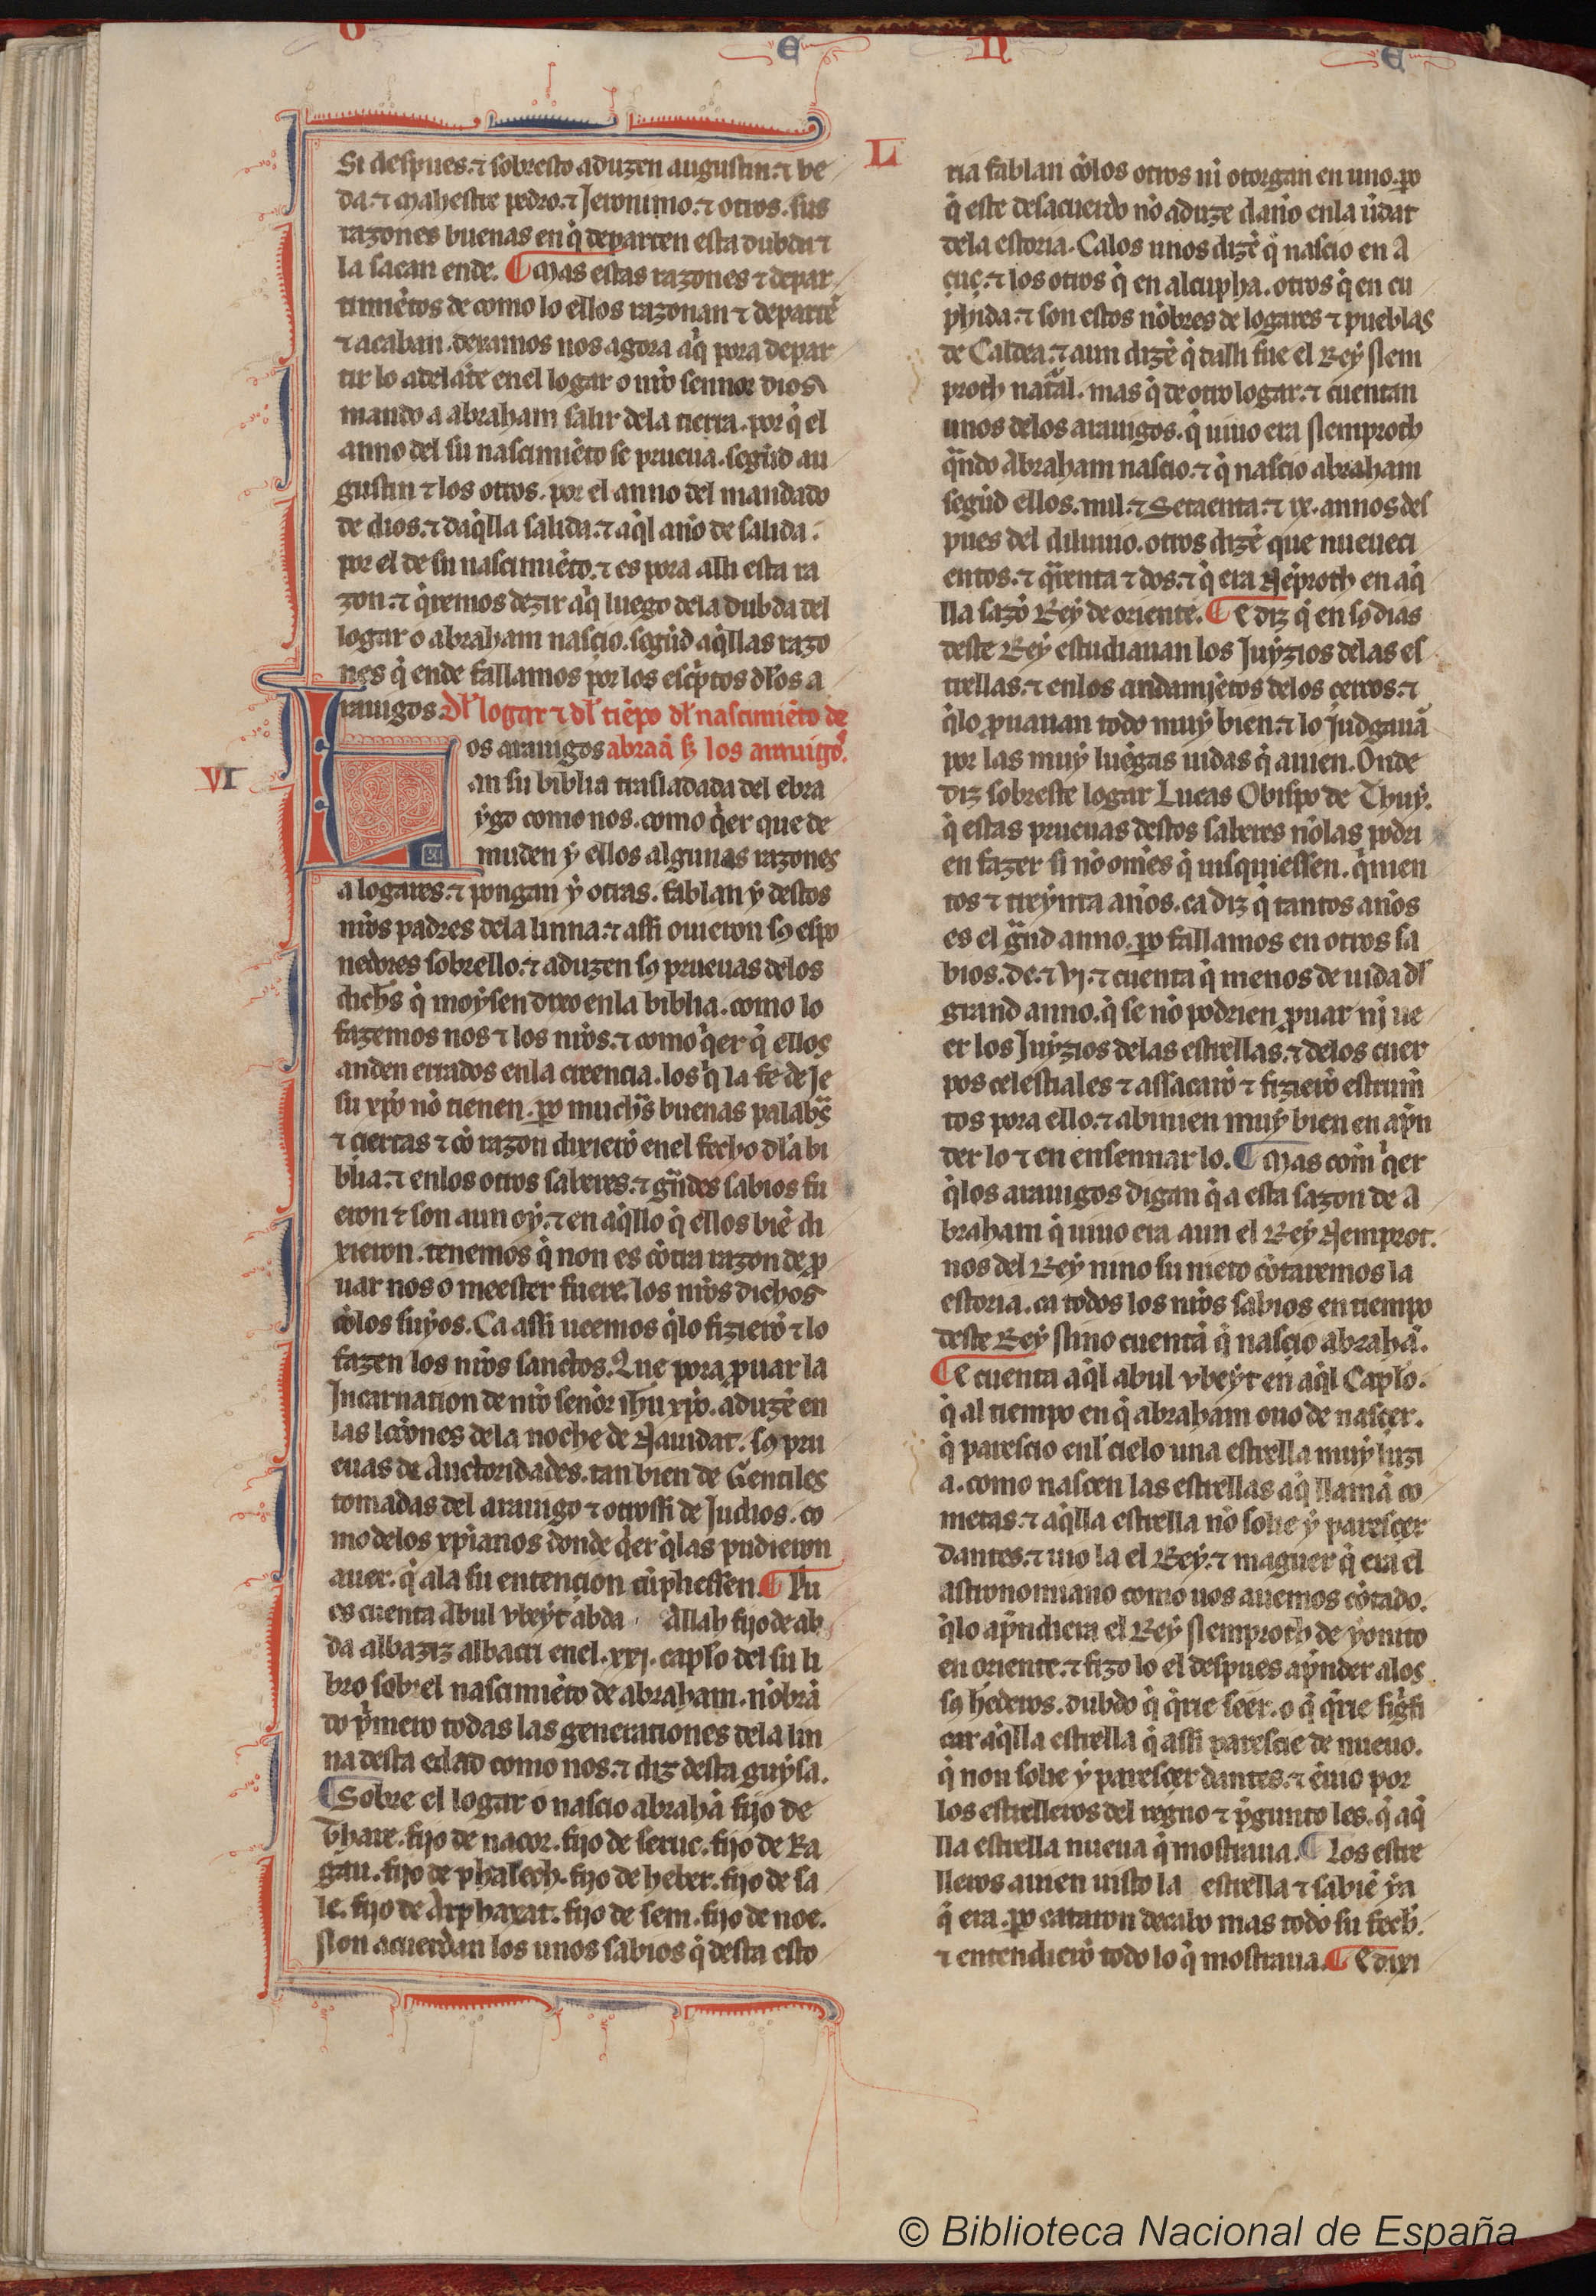 G E N E
L
Si despues. ⁊ sobresto aduzen augustin. ⁊ be
da. ⁊ Mahestre pedro. ⁊ Jeronimo. ⁊ otros. sus
razones buenas en q̇ departen esta dubda ⁊
la sacan ende. ¶ Mas estas razones ⁊ depar
timiẽtos de como lo ellos razonan ⁊ departẽ
⁊ acaban. dexamos nos agora aq̇ pora depar
tir lo adelãte enel logar o nr̃o sennor dios
mando a abraham salir dela tierra. por q̇ el
anno del su nascimiẽto se prueua. segũd au
gustin ⁊ los otros. por el anno del mandado
de dios. ⁊ daq̇lla salida. ⁊ aq̇l ãno de salida.
por el de su nascimiẽto. ⁊ es pora alli esta ra
zon. ⁊ q̇remos dezir aq̇ luego dela dubda del
logar o abraham nascio. segũd aq̇llas razo
nes q̇ ende fallamos por los esc̃ptos dl̃os a
rauigos. Dl̃ logar ⁊ dl̃ tiẽpo dl̃ nascimiẽto de
VI
Los arauigos abraã sʒ los arauigos.
an su biblia trasladada del ebra
ygo como nos. como q̇er que de
muden y ellos algunas razones
a logares. ⁊ pongan y otras. fablan y destos
nr̃os padres dela linna. ⁊ assi ouieron sꝯ espo
nedores sobrello. ⁊ aduzen sꝯ prueuas delos
dichos q̇ moysen dixo enla biblia. como lo
fazemos nos ⁊ los nr̃os. ⁊ como q̇er q̇ ellos
anden errados enla creencia. los q̇ la fe de Je
su xp̃o nõ tienen. ꝑo much̃s buenas palabr̃s
⁊ ciertas ⁊ cõ razon dixierõ enel fecho dl̃a bi
blia. ⁊ enlos otros saberes. ⁊ gñdes sabios fu
eron ⁊ son aun oy. ⁊ en aq̇llo q̇ ellos biẽ di
xieron. tenemos q̇ non es cõtra razon de ꝓ
uar nos o meester fuere. los nr̃os dichos
cõlos suyos. Ca assi ueemos q̇lo fizierõ ⁊ lo
fazen los nr̃os sanctos. Que pora ꝓuar la
Jncarnation de nr̃o señor ihũ xp̃o. aduzẽ en
las lc̃iones dela noche de Nauidat. sꝯ pru
euas de Auctoridades. tan bien de Gentiles
tomadas del arauigo ⁊ otrossi de Judios. co
mo delos xp̃ianos donde q̇er q̇las pudieron
auer. q̇ ala su entencion cũpliessen. ¶ Pu
es cuenta Abul vbeyt abda Allah fijo de ab
da albaziz albacri enel. xxj. cap̃lo del su li
bro sobrel nascimiẽto de abraham. nõbrã
do p̃mero todas las generationes dela lin
na desta edad como nos. ⁊ diz desta guysa.
¶ Sobre el logar o nascio abrahã fijo de
Thare. fijo de nacor. fijo de seruc. fijo de Ra
gau. fijo de phalech. fijo de heber. fijo de sa
le. fijo de Arphaxat. fijo de sem. fijo de noe.
Non acuerdan los unos sabios q̇ desta esto
ria fablan cõlos otros ni otorgan en uno. ꝑo
q̇ este desacuerdo nõ aduze daño enla ũdat
dela estoria. Ca los unos dizẽ q̇ nascio en A
çuç. ⁊ los otros q̇ en alcupha. otros q̇ en cu
phida. ⁊ son estos nõbres de logares ⁊ pueblas
de Caldea. ⁊ aun dizẽ q̇ dalli fue el Rey Nem
proth natãl. mas q̇ de otro logar. ⁊ cuentan
unos delos arauigos. q̇ uiuo era Nemproth
q̃ndo Abraham nascio. ⁊ q̇ nascio abraham
segũd ellos. mil. ⁊ Setaenta. ⁊ ix. annos des
pues del diluuio. otros dizẽ que nueueci
entos. ⁊ q̃renta ⁊ dos. ⁊ q̇ era Nẽproth en aq̇
lla sazõ Rey de oriente. ¶ E diz q̇ en sꝯ dias
deste Rey estudiauan los Juyzios delas es
trellas. ⁊ enlos andamjẽtos delos çercos. ⁊
q̇lo ꝓuauan todo muy bien. ⁊ lo judgauã
por las muy luẽgas uidas q̇ auien. Onde
diz sobreste logar Lucas Obispo de Thuy.
q̇ estas prueuas destos saberes nõ las podri
en fazer si nõ om̃es q̇ uisquiessen. q̇nien
tos ⁊ treynta años. ca diz q̇ tantos años
es el gr̃nd anno. ꝑo fallamos en otros sa
bios. de. ⁊ vj. ⁊ cuenta q̇ menos de uida dl̃
grand anno. q̇ se nõ podrien ꝓuar nj ue
er los Juyzios delas estrellas. ⁊ delos cuer
pos celestiales ⁊ assacarõ ⁊ fizierõ estrum̃
tos pora ello. ⁊ abinien muy bien en ap̃n
der lo ⁊ en ensennar lo. ¶ Mas com̃ q̇er
q̇los arauigos digan q̇ a esta sazon de A
braham q̇ uiuo era aun el Rey Nemprot.
nos del Rey nino su nieto cõtaremos la
estoria. ca todos los nr̃os sabios en tiempo
deste Rey Nino cuentã q̇ nascio abrahã.
¶ E cuenta aq̇l abul vbeyt en aq̇l Cap̃lo.
q̇ al tiempo en q̇ abraham ouo de nasçer.
q̇ parescio enl̃ cielo una estrella muy luzi
a. como nascen las estrellas aq̇ llamã co
metas. ⁊ aq̇lla estrella nõ solie y paresçer
dantes. ⁊ uio la el Rey. ⁊ maguer q̇ era el
astronomiano como uos auemos cõtado.
q̇lo ap̃ndiera el Rey Nemproth de yonito
en oriente. ⁊ fizo lo el despues ap̃nder alos
sꝯ hederos. dubdo q̇ q̇rie seer. o q̇ q̇rie sig̃fi
car aq̇lla estrella q̇ assi parescie de nueuo.
q̇ non solie y paresçer dantes. ⁊ ẽuio por
los estrelleros del regno ⁊ p̃gunto les. q̇ aq̇
lla estrella nueua q̇ mostraua. ¶ Los estre
lleros auien uisto la estrella ⁊ sabiẽ ya
q̇ era. ꝑo cataron decabo mas todo su fech̃.
⁊ entendierõ todo lo q̇ mostraua. ¶ E dixi
© Biblioteca Nacional de España